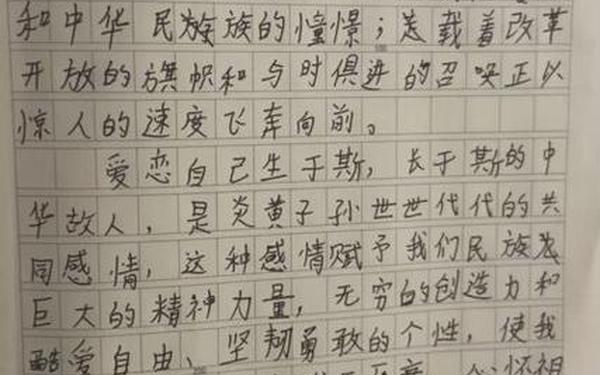 和中华民族族的憧憬；是载着改革
开放的旗帜和与时俱进的召唤正以
惊人的速度飞奔向前。
爱恋自己生于斯，长于斯的中
华故人，是炎黄子孙世世代代的共
同感情，这种感情赋予我们民族
巨大的精神力量，无穷的创造力和
酷爱自由、坚韧勇敢的个性，使我
怀祖